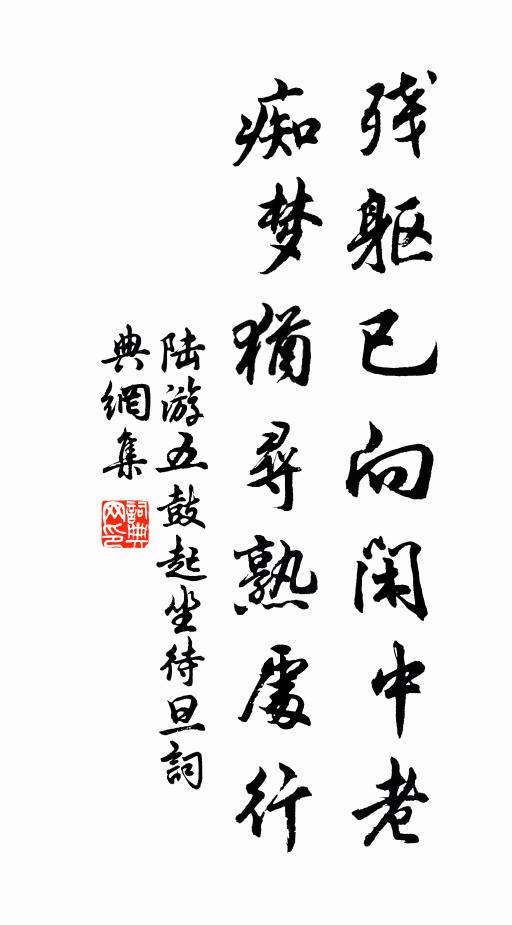 残躯已向闲中老
痴梦犹尋熟處行
陆游五鼓起坐待旦詞
典網集
詞典
网印